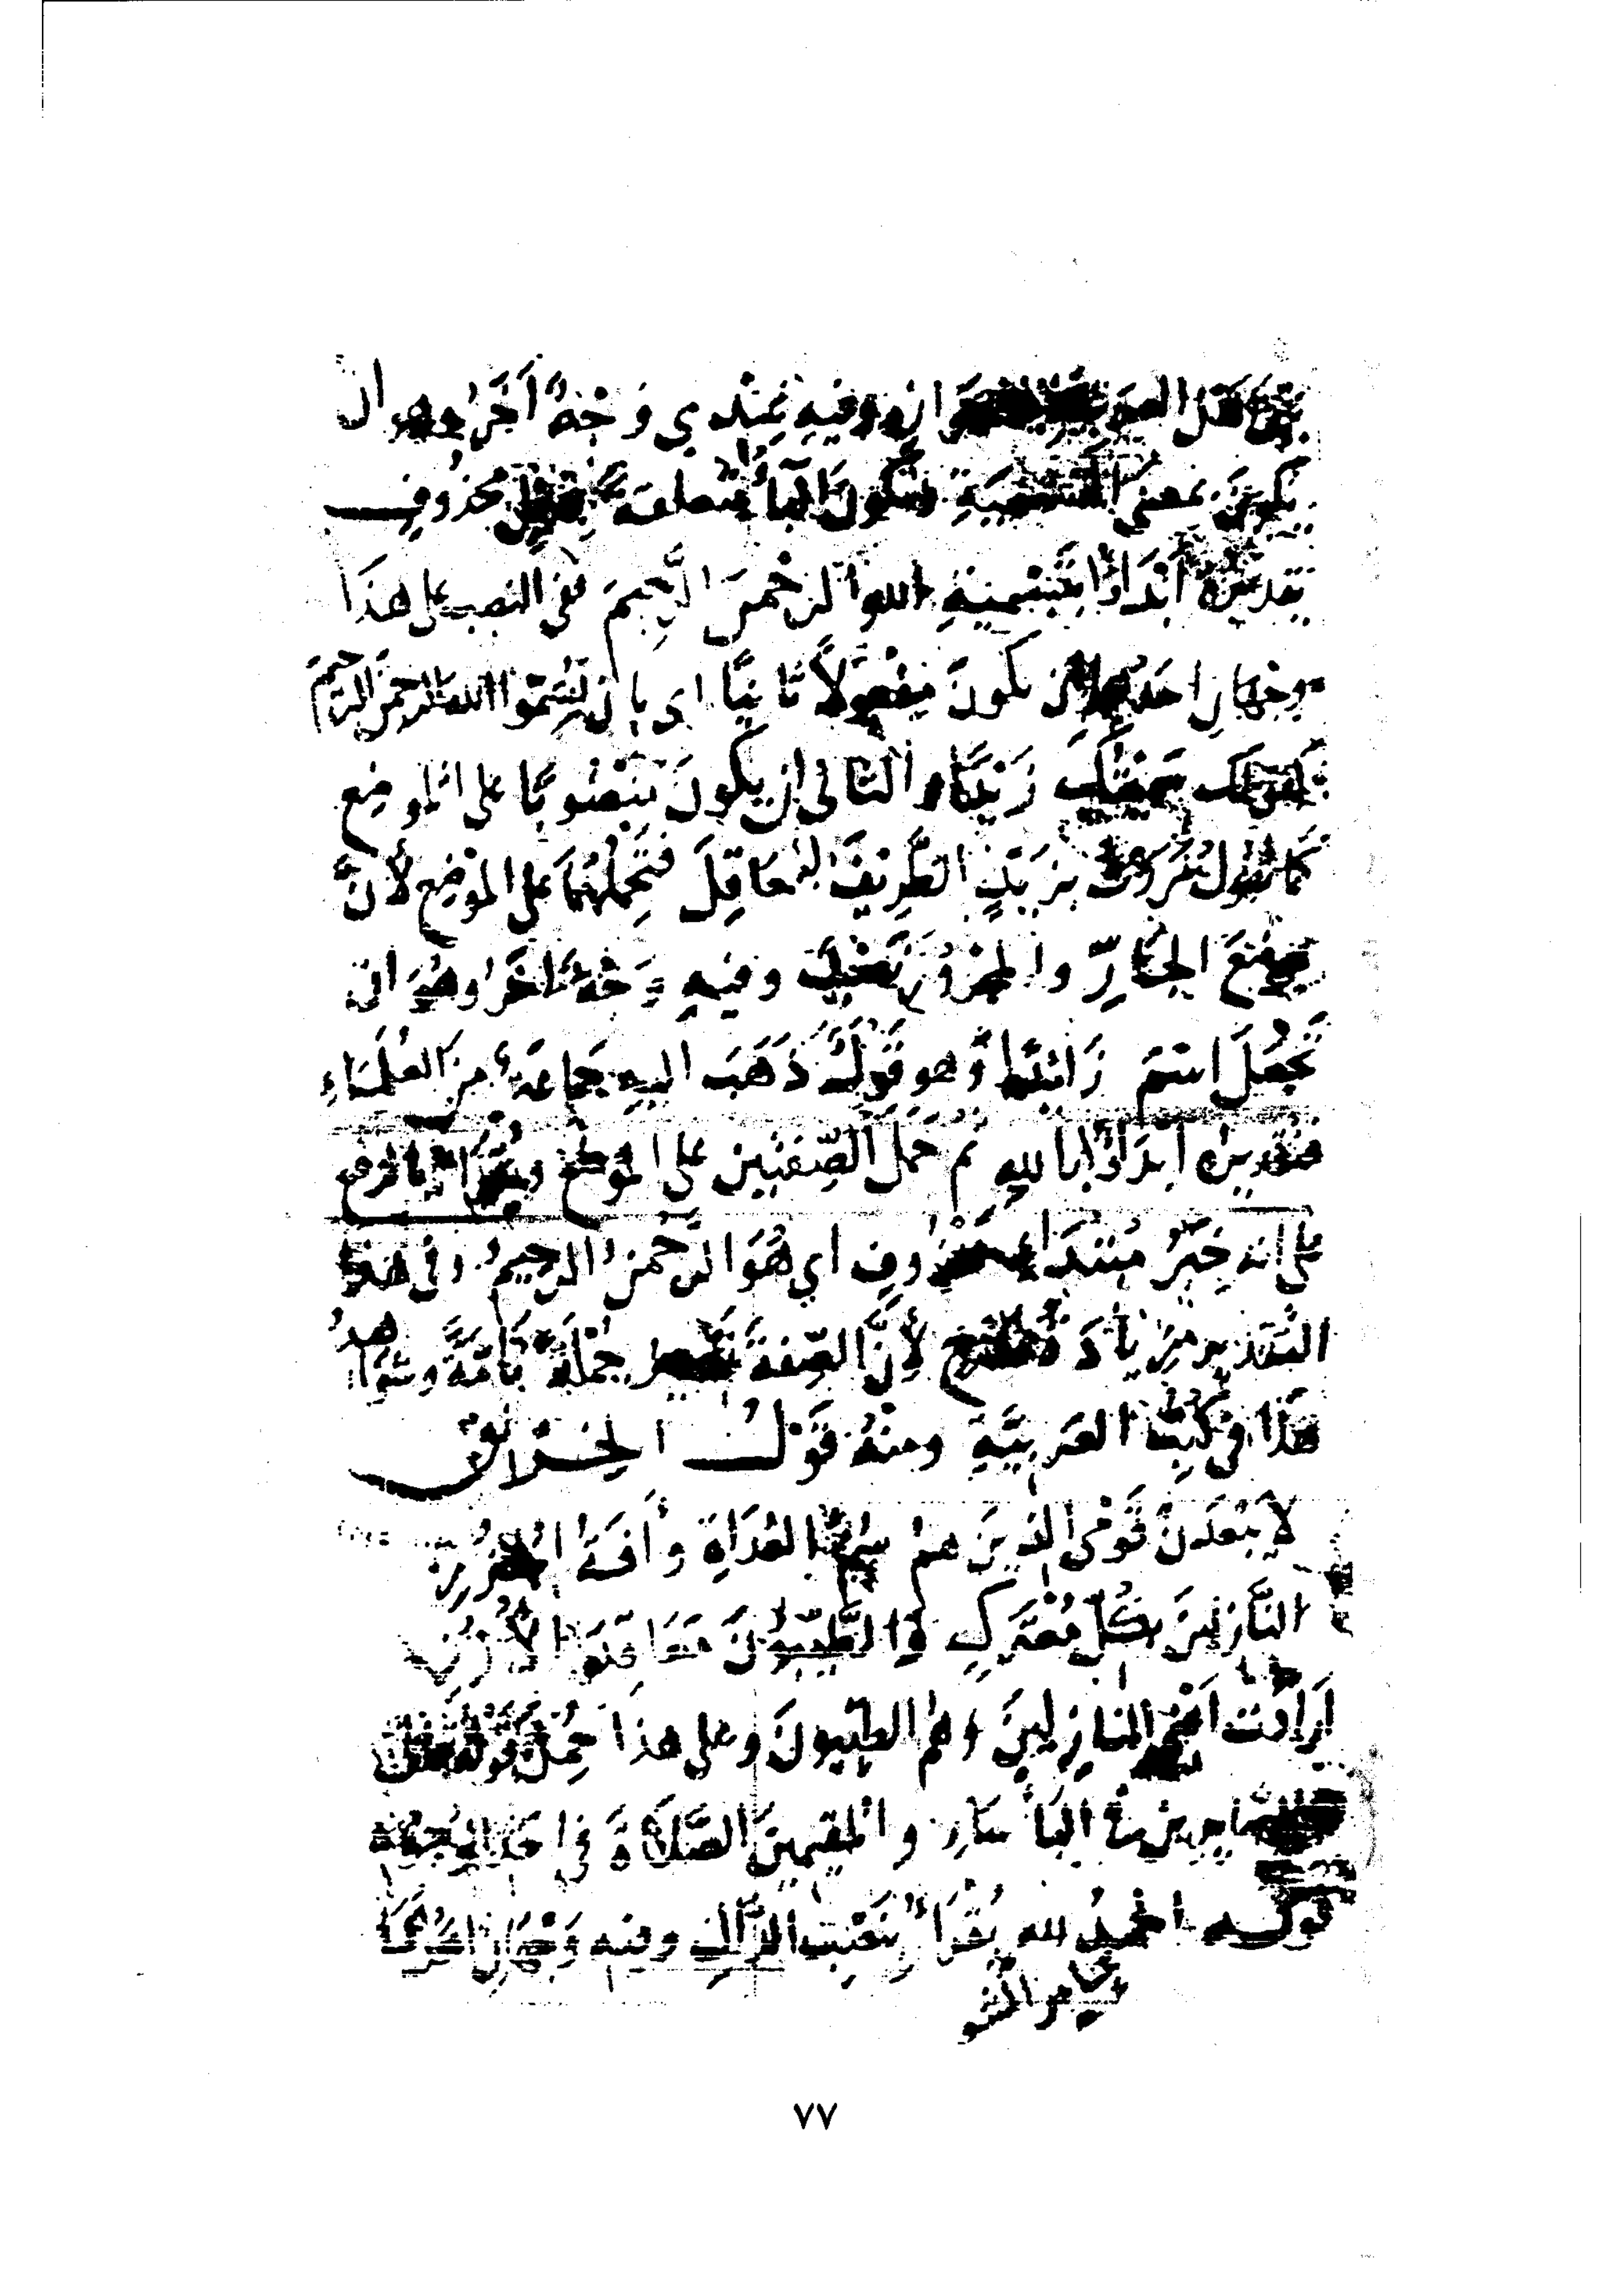 وفيه عندي وجه آخر وهو ان
يكون بمعنى التسمية وتكون الباء متعلقة بفعل محذوف
تقديره أبدأ بتسمية الله الرحمن الرحيم ففي النصب على هذا
وجهان احدهما ان يكون مفعولاً ثانيًا اى بان تسموا الله الرحمن الرحيم
كقولك سميتك زيدًا والثاني ان يكون منصوبًا على الموضع
كما تقول مررت بزيدٍ الظريفَ العاقلَ فتحملهما على الموضع لأنّ
موضع الجارّ والمجرور نصب وفيه وجه آخر وهو ان
تجعل اسم زائدًا وهو قول ذهب اليه جماعة من العلماء
فتقديره أبدأ بالله ثم حمل الصفتين على الموضع ويقرأ بالرفع
على انه خبر مبتداء محذوف اي هو الرحمن الرحيم وفى هذا
التقدير زيادة مدح لأنّ الصفة تصير جملة تامّة وشواهد
هذا في كتب العربية ومنه قول الخرنق
لا يبعدن قومى الذين هم سم العداة وآفة الجزر
النازلين بكل معترك والطيبون معاقد الأزر
ارادت اعني النازلين وهم الطيبون وعلى هذا حمل قوله تعالى
والصابرين في البأساء والمقيمين الصلاة في احد الوجوه
قوله الحمد لله يقرأ بنصب الدال وفيه وجهان احدهما
٧٧